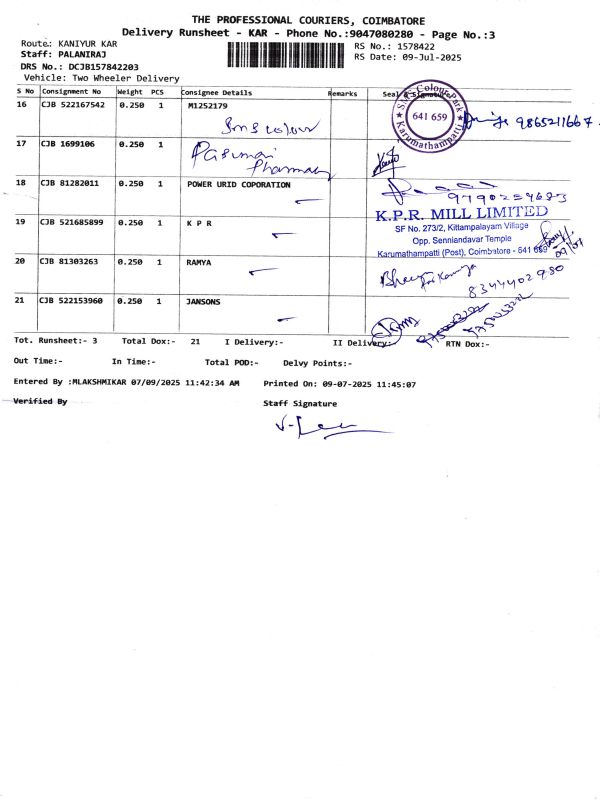 THE PROFESSIONAL COURIERS, COIMBATORE
Delivery Runsheet - KAR - Phone No.:9047080280 - Page No.:3
Route: KANIYUR KAR
RS No.: 1578422
Staff: PALANIRAJ
RS Date: 09-Jul-2025
DRS No.: DCJB157842203
Vehicle: Two Wheeler Delivery
S No Consignment No Weight PCS Consignee Details Remarks Seal & Signature
16 CJB 522167542 0.250 1 M1252179
Sms colour
S.M.S. Colour Park
641 659
Karumathampatti
9865211667
17 CJB 1699106 0.250 1 Pasumai
Pharmacy
18 CJB 81282011 0.250 1 POWER URID COPORATION
9790254683
19 CJB 521685899 0.250 1 K P R
K.P.R. MILL LIMITED
SF No. 273/2, Kittampalayam Village
Opp. Senniandavar Temple
Karumathampatti (Post), Coimbatore - 641 659
20 CJB 81303263 0.250 1 RAMYA
8344402980
21 CJB 522153960 0.250 1 JANSONS
Tot. Runsheet:- 3 Total Dox:- 21 I Delivery:- II Delivery:- RTN Dox:-
Out Time:- In Time:- Total POD:- Delvy Points:-
Entered By :MLAKSHMIKAR 07/09/2025 11:42:34 AM Printed On: 09-07-2025 11:45:07
Verified By Staff Signature